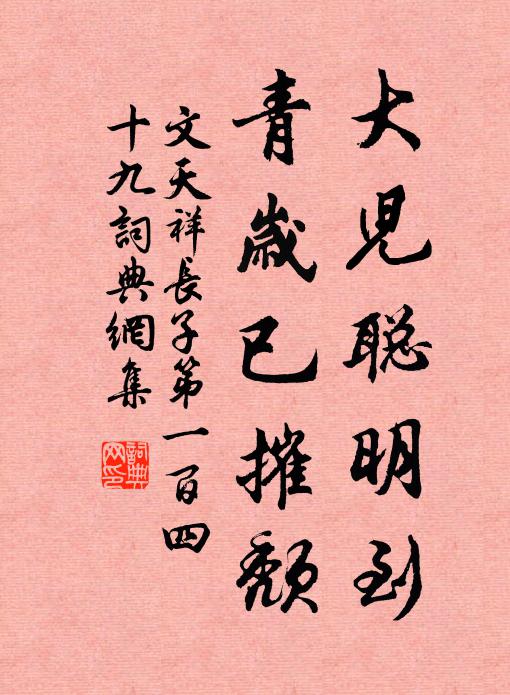 大児聡明到
青歳已摧頽
文天祥長子第一百四
十九詞典網集
詞典网印